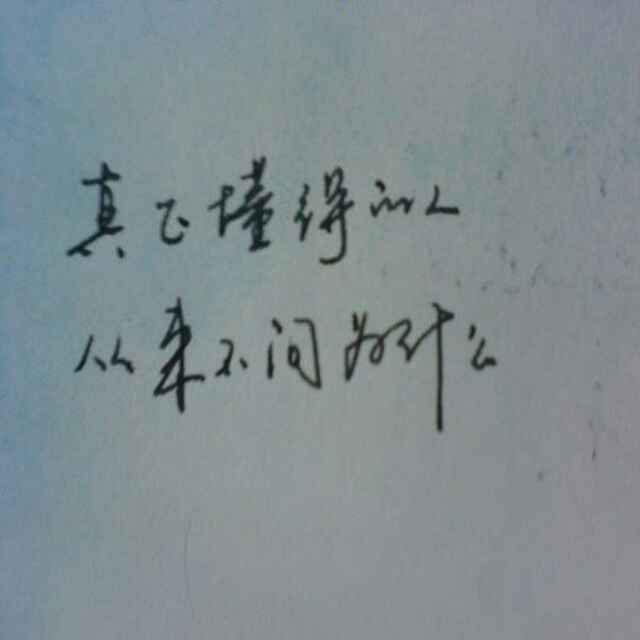 真正懂得的人
从来不问为什么